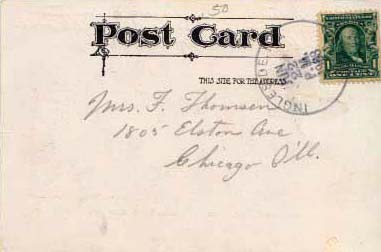 .50
Post Card
THIS SIDE FOR THE ADDRESS
INGLESIDE
JUN
Mrs. F. Thomsen
1805 Elston Ave
Chicago Ill.